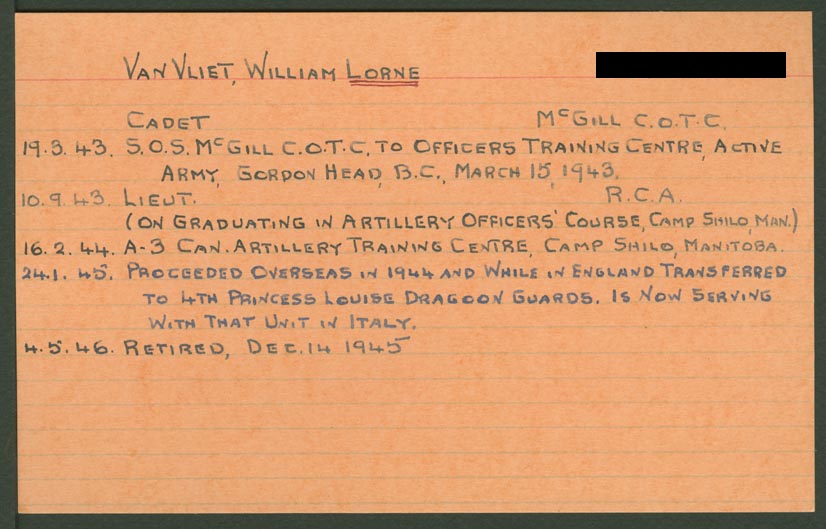 VAN VLIET, WILLIAM LORNE
CADET McGILL C.O.T.C.
19.3.43. S.O.S. McGILL C.O.T.C. TO OFFICERS TRAINING CENTRE, ACTIVE
ARMY, GORDON HEAD, B.C., MARCH 15, 1943.
10.9.43. LIEUT. R.C.A.
(ON GRADUATING IN ARTILLERY OFFICERS' COURSE, CAMP SHILO, MAN.)
16.2.44. A-3 CAN. ARTILLERY TRAINING CENTRE, CAMP SHILO, MANITOBA.
24.1.45. PROCEEDED OVERSEAS IN 1944 AND WHILE IN ENGLAND TRANSFERRED
TO 4TH PRINCESS LOUISE DRAGOON GUARDS. IS NOW SERVING
WITH THAT UNIT IN ITALY.
4.5.46. RETIRED, DEC. 14 1945